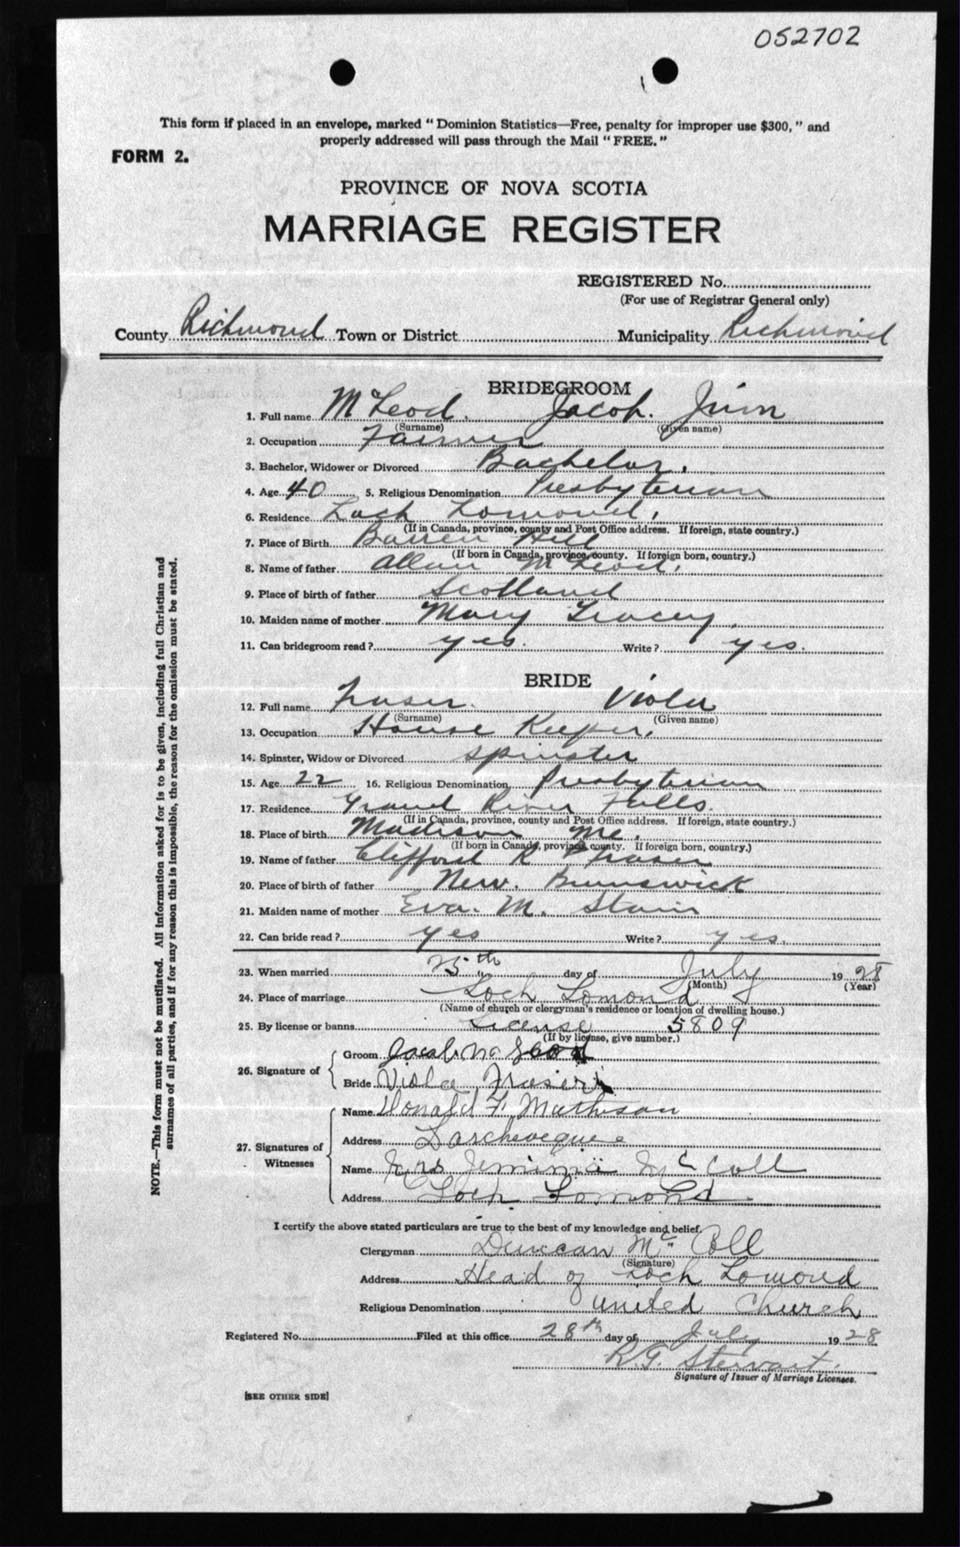 052702
This form if placed in an envelope, marked "Dominion Statistics—Free, penalty for improper use $300," and
properly addressed will pass through the Mail "FREE."
FORM 2.
PROVINCE OF NOVA SCOTIA
MARRIAGE REGISTER
REGISTERED No.
(For use of Registrar General only)
County Richmond Town or District Municipality Richmond
BRIDEGROOM
1. Full name McLeod. Jacob.
(Surname) (Given name)
2. Occupation Farmer
3. Bachelor, Widower or Divorced Bachelor.
4. Age 40 5. Religious Denomination Presbyterian
6. Residence Loch Lomond,
(If in Canada, province, county and Post Office address. If foreign, state country.)
7. Place of Birth Barren Hill
(If born in Canada, province, county. If foreign born, country.)
8. Name of father Allan McLeod.
9. Place of birth of father Scotland
10. Maiden name of mother Mary Tracey.
11. Can bridegroom read? yes. Write? yes.
BRIDE
12. Full name Fraser. Viola
(Surname) (Given name)
13. Occupation House Keeper.
14. Spinster, Widow or Divorced Spinster
15. Age 22 16. Religious Denomination Presbyterian
17. Residence Grand River Falls.
(If in Canada, province, county and Post Office address. If foreign, state country.)
18. Place of birth Madison Me.
(If born in Canada, province, county. If foreign born, country.)
19. Name of father Clifford R Fraser
20. Place of birth of father New. Brunswick
21. Maiden name of mother Eva. M. Stain
22. Can bride read? yes Write? yes.
23. When married 25th day of July 1928
(Month) (Year)
24. Place of marriage Loch Lomond
(Name of church or clergyman's residence or location of dwelling house.)
25. By license or banns License 5809
(If by license, give number.)
26. Signature of
Groom Jacob McLeod
Bride Viola Fraser
27. Signatures of Witnesses
Name Donald F. Matheson
Address Larcheveque
Name Mrs Jemima McColl
Address Loch Lomond
I certify the above stated particulars are true to the best of my knowledge and belief.
Clergyman Duncan McColl
(Signature)
Address Head of Loch Lomond
Religious Denomination United Church
Registered No. Filed at this office 28th day of July 1928
R.G. Stewart.
Signature of Issuer of Marriage Licenses.
[SEE OTHER SIDE]
NOTE.—This form must not be mutilated. All information asked for is to be given, including full Christian and
surnames of all parties, and if for any reason this is impossible, the reason for the omission must be stated.